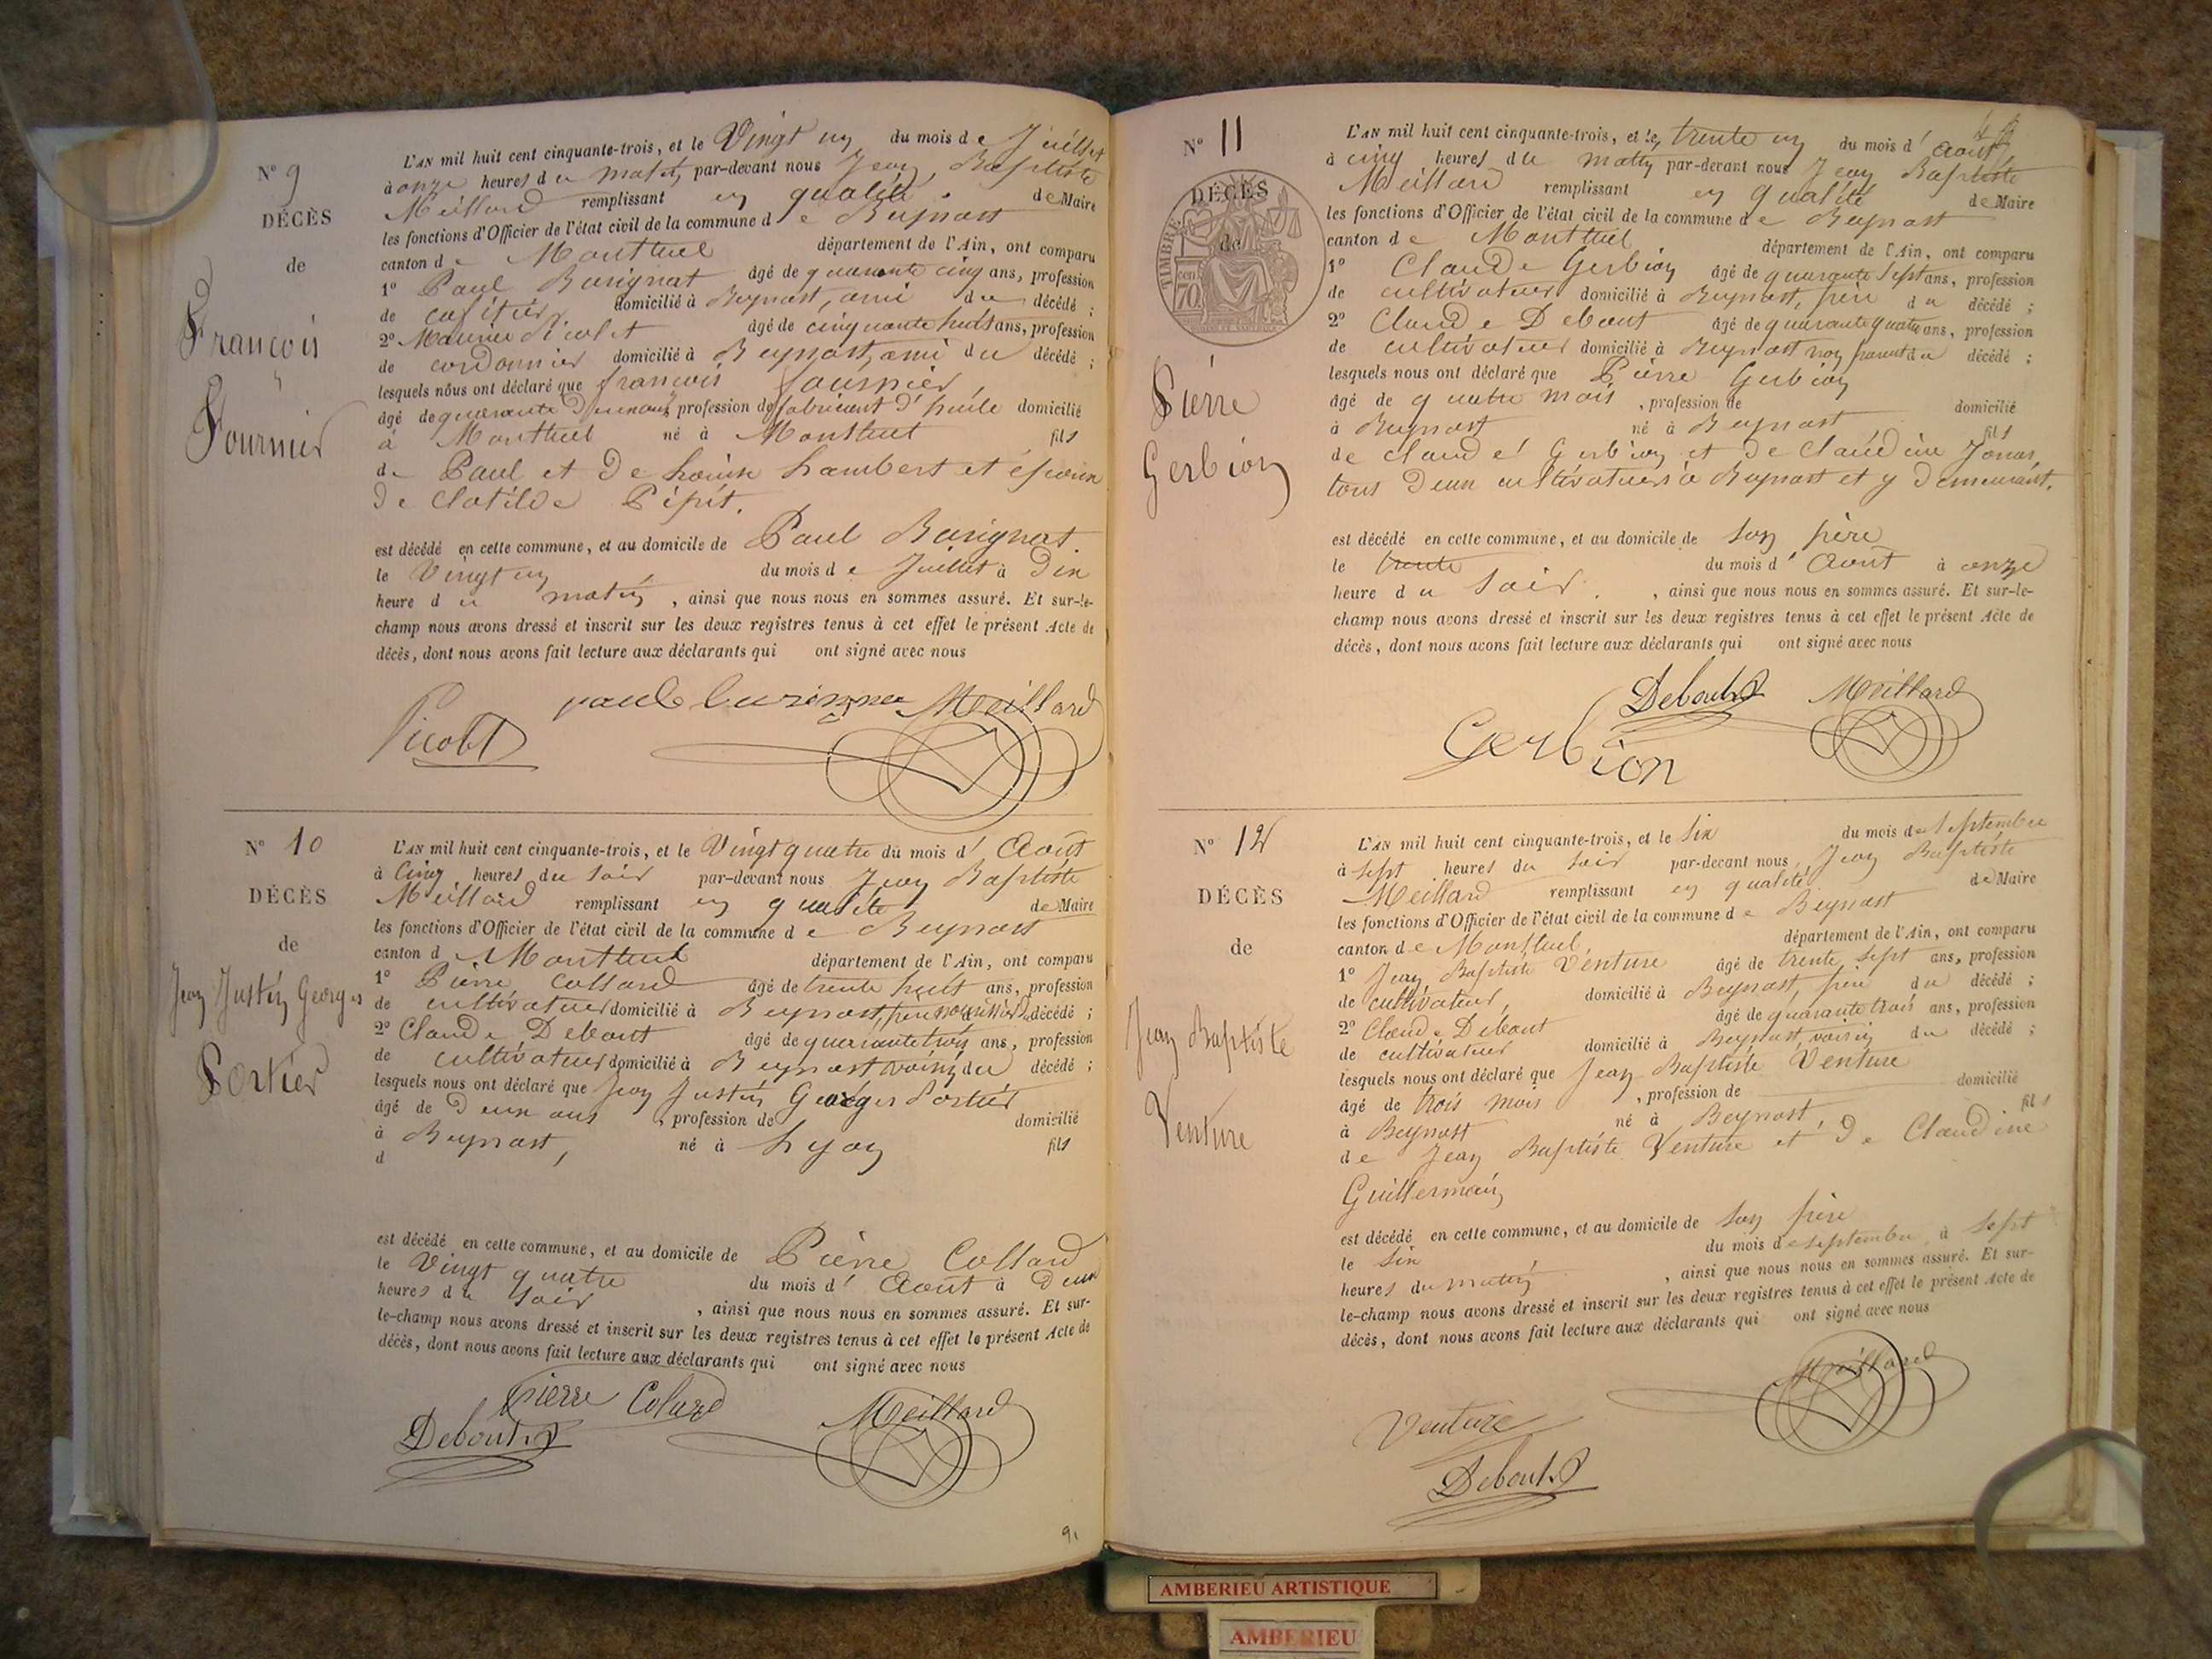 N° 9
DÉCÈS
de
François
Fournier
L'AN mil huit cent cinquante-trois, et le Vingt un du mois de Juillet
à onze heures du matin, par-devant nous Jean Baptiste
Meillard remplissant en qualité de Maire
les fonctions d'Officier de l'état civil de la commune de Beynost
canton de Montluel département de l'Ain, ont comparu
1° Paul Burignat âgé de quarante cinq ans, profession
de cafetier domicilié à Beynost, ami du décédé ;
2° Maurice Picolet âgé de cinquante huit ans, profession
de cordonnier domicilié à Beynost, ami du décédé ;
lesquels nous ont déclaré que françois fournier,
âgé de quarante deux ans, profession de fabricant d'huile domicilié
à Montluel né à Montluel fils
de Paul et de Louise Lambert et époux
de Clotilde Pépit.
est décédé en cette commune, et au domicile de Paul Burignat.
le Vingt un du mois de Juillet à Dix
heure du matin, ainsi que nous nous en sommes assuré. Et sur-le-
champ nous avons dressé et inscrit sur les deux registres tenus à cet effet le présent Acte de
décès, dont nous avons fait lecture aux déclarants qui ont signé avec nous
paul Meillard
Picolet
N° 10
DÉCÈS
de
Jean Justin Georges
Portier
L'AN mil huit cent cinquante-trois, et le Vingt quatre du mois d'Août
à Cinq heures du soir par-devant nous Jean Baptiste
Meillard remplissant en qualité de Maire
les fonctions d'Officier de l'état civil de la commune de Beynost
canton de Montluel département de l'Ain, ont comparu
1° Pierre Collard âgé de trente huit ans, profession
de cultivateur domicilié à Beynost, père nourricier du décédé ;
2° Claude Debout âgé de quarante trois ans, profession
de cultivateur domicilié à Beynost voisin du décédé ;
lesquels nous ont déclaré que Jean Justin Georges Portier
âgé de Deux ans, profession de domicilié
à Beynost, né à Lyon fils
d
est décédé en cette commune, et au domicile de Pierre Collard
le Vingt quatre du mois d'Août à Deux
heures du soir, ainsi que nous nous en sommes assuré. Et sur-
le-champ nous avons dressé et inscrit sur les deux registres tenus à cet effet le présent Acte de
décès, dont nous avons fait lecture aux déclarants qui ont signé avec nous
pierre Colard Meillard
Debout
91
N° 11
DÉCÈS
de
TIMBRE
70 cen
Pierre
Gerbion
L'AN mil huit cent cinquante-trois, et le trente un du mois d'août
à cinq heures du matin par-devant nous Jean Baptiste
Meillard remplissant en qualité de Maire
les fonctions d'Officier de l'état civil de la commune de Beynost
canton de Montluel département de l'Ain, ont comparu
1° Claude Gerbion âgé de quarante sept ans, profession
de cultivateur domicilié à Beynost, père du décédé ;
2° Claude Debout âgé de quarante quatre ans, profession
de cultivateur domicilié à Beynost non parent du décédé ;
lesquels nous ont déclaré que Pierre Gerbion
âgé de quatre mois, profession de domicilié
à Beynost né à Beynost, fils
de claude Gerbion et de Claudine Jonas,
tous deux cultivateurs à Beynost et y demeurant.
est décédé en cette commune, et au domicile de son père
le trente du mois d'Août à onze
heure du soir, ainsi que nous nous en sommes assuré. Et sur-le-
champ nous avons dressé et inscrit sur les deux registres tenus à cet effet le présent Acte de
décès, dont nous avons fait lecture aux déclarants qui ont signé avec nous
Debout Meillard
Gerbion
N° 12
DÉCÈS
de
Jean Baptiste
Venture
L'AN mil huit cent cinquante-trois, et le six du mois de septembre
à sept heures du soir par-devant nous, Jean Baptiste
Meillard remplissant en qualité de Maire
les fonctions d'Officier de l'état civil de la commune de Beynost
canton de Montluel, département de l'Ain, ont comparu
1° Jean Baptiste Venture âgé de trente sept ans, profession
de cultivateur, domicilié à Beynost, père du décédé ;
2° Claude Debout âgé de quarante trois ans, profession
de cultivateur domicilié à Beynost, voisin du décédé ;
lesquels nous ont déclaré que Jean Baptiste Venture
âgé de trois mois, profession de domicilié
à Beynost né à Beynost, fils
de Jean Baptiste Venture et de Claudine
Guillermain
est décédé en cette commune, et au domicile de son père
le six du mois de septembre à sept
heures du matin, ainsi que nous nous en sommes assuré. Et sur-
le-champ nous avons dressé et inscrit sur les deux registres tenus à cet effet le présent Acte de
décès, dont nous avons fait lecture aux déclarants qui ont signé avec nous
Meillard
Venture
Debout
AMBERIEU ARTISTIQUE
AMBERIEU